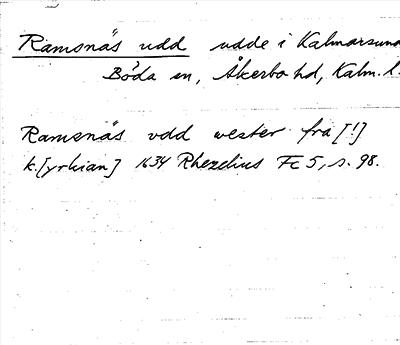 Ramsnäs udd udde i Kalmarsund
Böda sn, Åkerbo hd, Kalm. l.
Ramsnäs vdd wester frå [!]
k.[yrkian] 1634 Rhezelius Fc 5, s. 98.